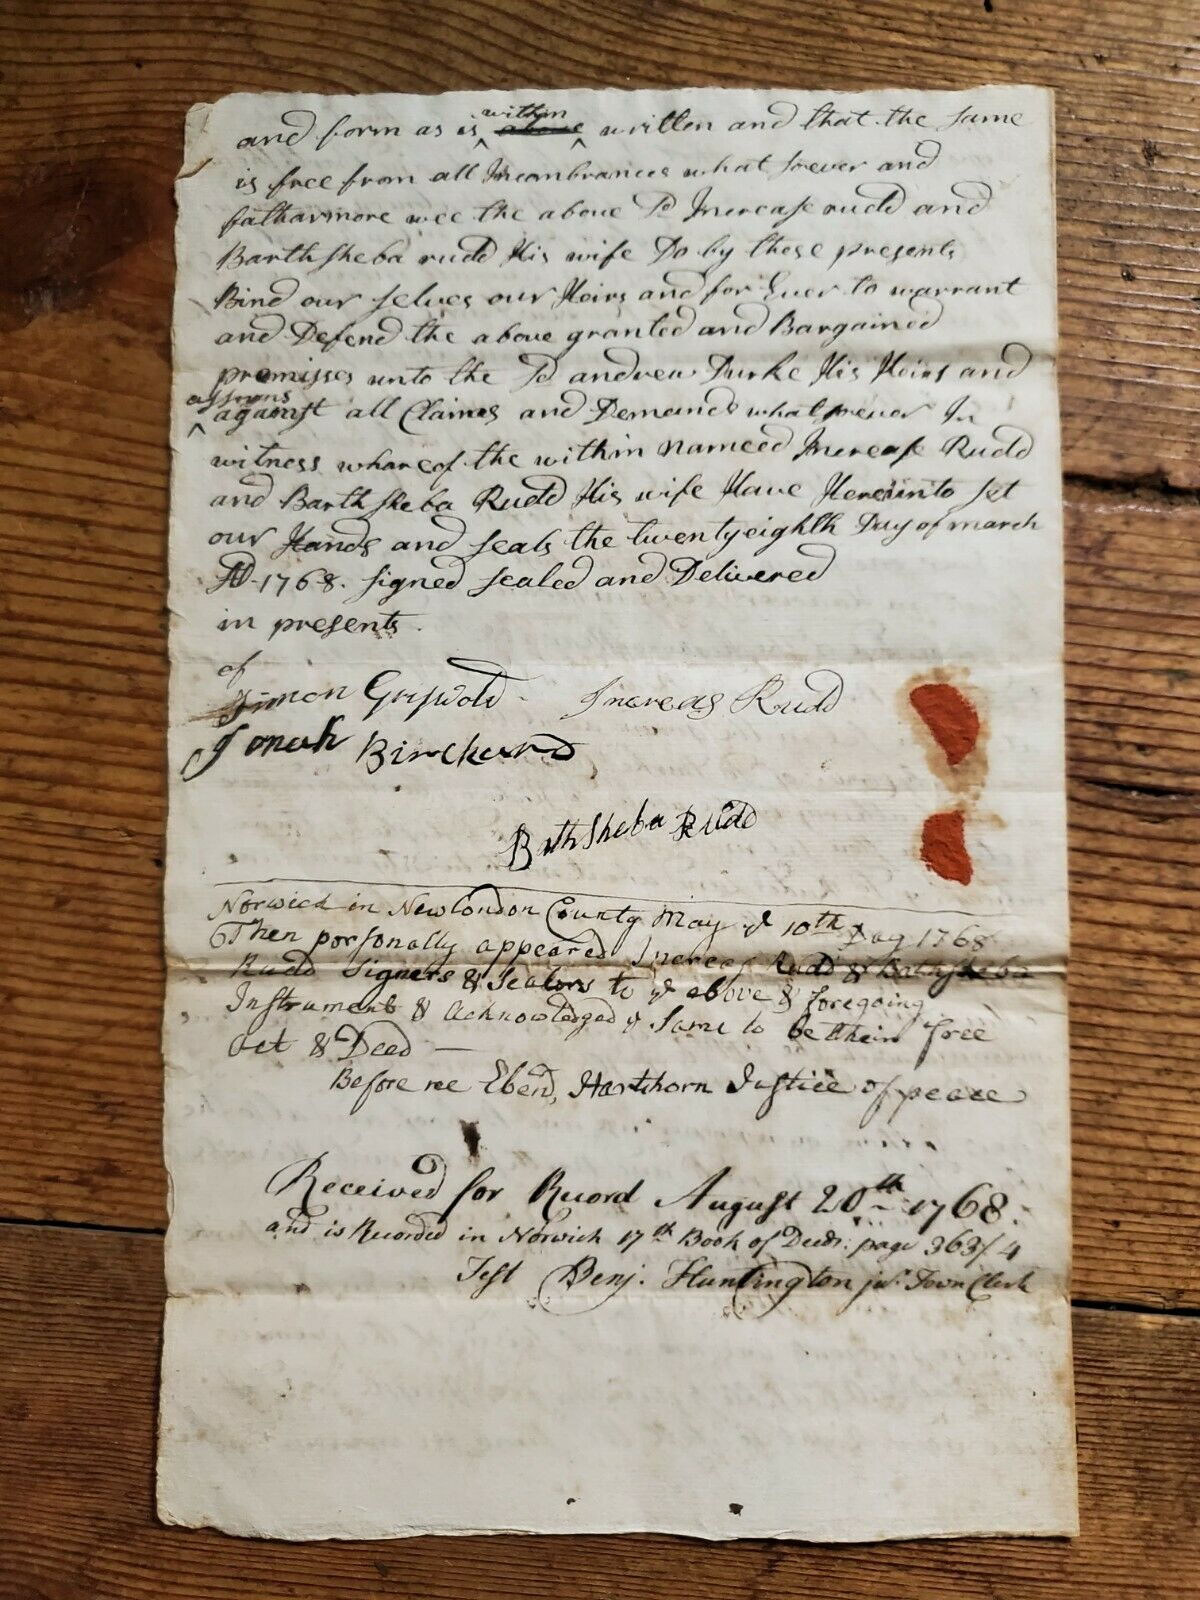 and form as is within above written and that the same
is free from all Incombrances what soever and
fatharmore wee the above Sd Increase rudd and
Barthsheba rudd His wife Do by these presents
Bind our selves our Heirs and for Euer to warrant
and Defend the above granted and Bargained
premisses unto the Sd andrew Durke His Heirs and
assigns
against all Claimes and Demands whatsoeuer In
witness whareof the within Nameed Increase Rudd
and Barthsheba Rudd His wife Haue Hereunto set
our Hands and seals the twentyeighth Day of march
AD-1768. signed sealed and Delivered
in presents.
of
Simon Griswold Increas Rudd
Jonah Birchard
Bathsheba Rudd
Norwich in New London County May ye 10th Day 1768
Then personally appeared Increas Rudd & Bathsheba
Rudd Signers & Sealors to ye above & foregoing
Instrument & Acknowledged ye Same to be their free
act & Deed —
Before me Ebenr, Hartshorn Justice of peace
Received for Record August 20th 1768.
and is Recorded in Norwich 17th Book of Deeds. page 363/4
Test Benj. Huntington jur. Town Clerk